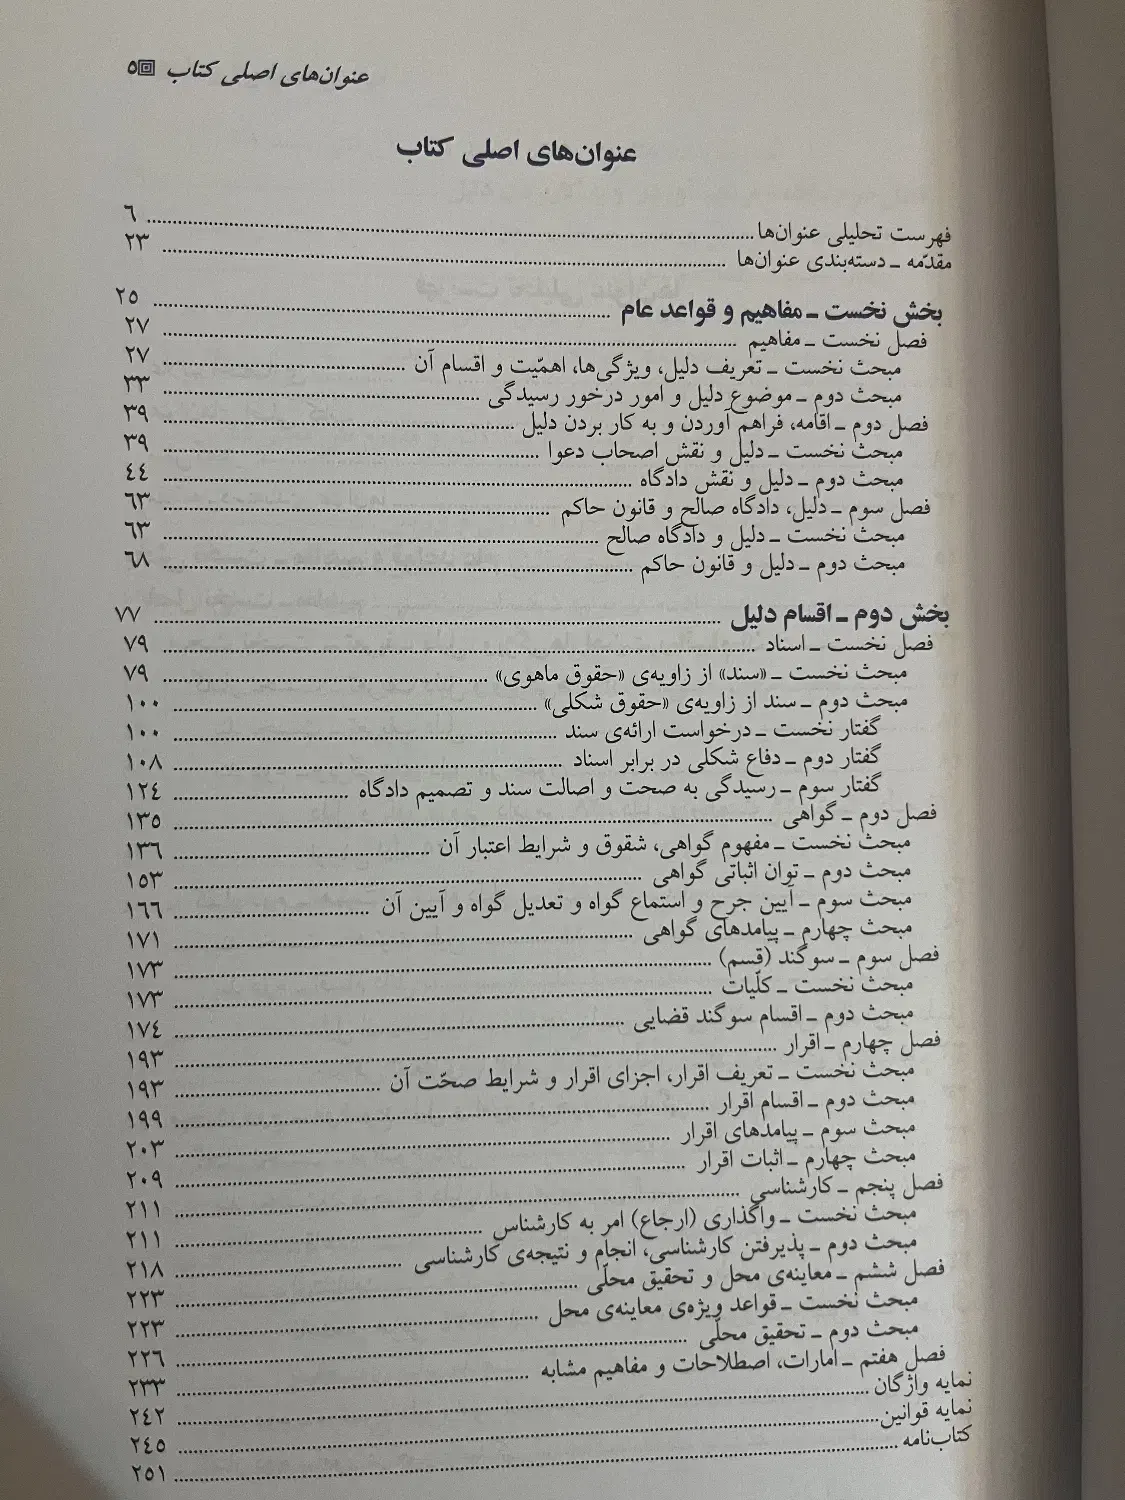 عنوان‌های اصلی کتاب ۵
عنوان‌های اصلی کتاب
فهرست تحلیلی عنوان‌ها ۶
مقدّمه ـ دسته‌بندی عنوان‌ها ۲۳
بخش نخست ـ مفاهیم و قواعد عام ۲۵
فصل نخست ـ مفاهیم ۲۷
مبحث نخست ـ تعریف دلیل، ویژگی‌ها، اهمّیت و اقسام آن ۲۷
مبحث دوم ـ موضوع دلیل و امور درخور رسیدگی ۳۳
فصل دوم ـ اقامه، فراهم آوردن و به کار بردن دلیل ۳۹
مبحث نخست ـ دلیل و نقش اصحاب دعوا ۳۹
مبحث دوم ـ دلیل و نقش دادگاه ۴۴
فصل سوم ـ دلیل، دادگاه صالح و قانون حاکم ۶۳
مبحث نخست ـ دلیل و دادگاه صالح ۶۳
مبحث دوم ـ دلیل و قانون حاکم ۶۸
بخش دوم ـ اقسام دلیل ۷۷
فصل نخست ـ اسناد ۷۹
مبحث نخست ـ «سند» از زاویه‌ی «حقوق ماهوی» ۷۹
مبحث دوم ـ سند از زاویه‌ی «حقوق شکلی» ۱۰۰
گفتار نخست ـ درخواست ارائه‌ی سند ۱۰۰
گفتار دوم ـ دفاع شکلی در برابر اسناد ۱۰۸
گفتار سوم ـ رسیدگی به صحت و اصالت سند و تصمیم دادگاه ۱۲۴
فصل دوم ـ گواهی ۱۳۵
مبحث نخست ـ مفهوم گواهی، شقوق و شرایط اعتبار آن ۱۳۶
مبحث دوم ـ توان اثباتی گواهی ۱۵۳
مبحث سوم ـ آیین جرح و استماع گواه و تعدیل گواه و آیین آن ۱۶۶
مبحث چهارم ـ پیامدهای گواهی ۱۷۱
فصل سوم ـ سوگند (قسم) ۱۷۳
مبحث نخست ـ کلّیات ۱۷۳
مبحث دوم ـ اقسام سوگند قضایی ۱۷۴
فصل چهارم ـ اقرار ۱۹۳
مبحث نخست ـ تعریف اقرار، اجزای اقرار و شرایط صحّت آن ۱۹۳
مبحث دوم ـ اقسام اقرار ۱۹۹
مبحث سوم ـ پیامدهای اقرار ۲۰۳
مبحث چهارم ـ اثبات اقرار ۲۰۹
فصل پنجم ـ کارشناسی ۲۱۱
مبحث نخست ـ واگذاری (ارجاع) امر به کارشناس ۲۱۱
مبحث دوم ـ پذیرفتن کارشناسی، انجام و نتیجه‌ی کارشناسی ۲۱۸
فصل ششم ـ معاینه‌ی محل و تحقیق محلّی ۲۲۳
مبحث نخست ـ قواعد ویژه‌ی معاینه‌ی محل ۲۲۳
مبحث دوم ـ تحقیق محلّی ۲۲۶
فصل هفتم ـ امارات، اصطلاحات و مفاهیم مشابه ۲۳۳
نمایه واژگان ۲۴۲
نمایه قوانین ۲۴۵
کتاب‌نامه ۲۵۱